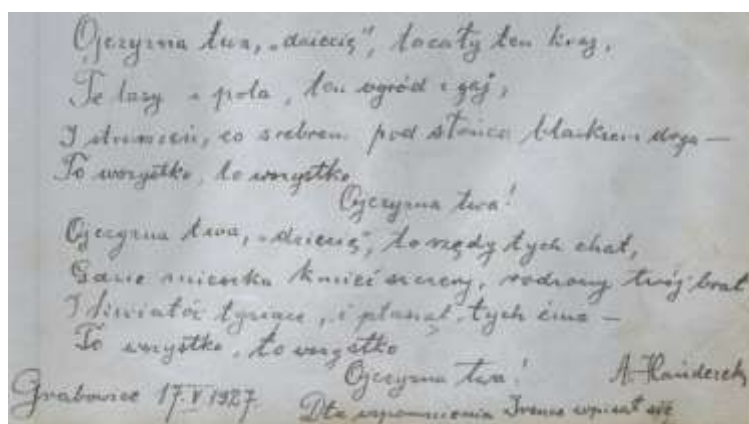 Ojczyzna twa, „dziecię", to cały ten kraj,
Te lasy i pola, ten ogród i gaj,
I strumień, co srebrem pod słońca blaskiem drga —
To wszystko, to wszystko
Ojczyzna twa!
Ojczyzna twa, „dziecię", to rzędy tych chat,
Gdzie mieszka kmieć szczery, rodzony twój brat
I kwiatów tysiące, i ptasząt tych ćma —
To wszystko, to wszystko
Ojczyzna twa!
A. Handerek
Grabowiec 17.V 1927.
Dla wspomnienia Irence wpisał się